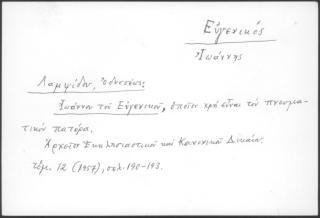 Εὐγενικός
Ἰωάννης
Λαμψίδου, Ὀδυσσέως:
Ἰωάννου τοῦ Εὐγενικοῦ, ὁποῖον χρὴ εἶναι τὸν πνευμα-
τικὸν πατέρα.
Ἀρχεῖον Ἐκκλησιαστικοῦ καὶ Κανονικοῦ Δικαίου.
τόμ. 12 (1957), σελ. 190-193.